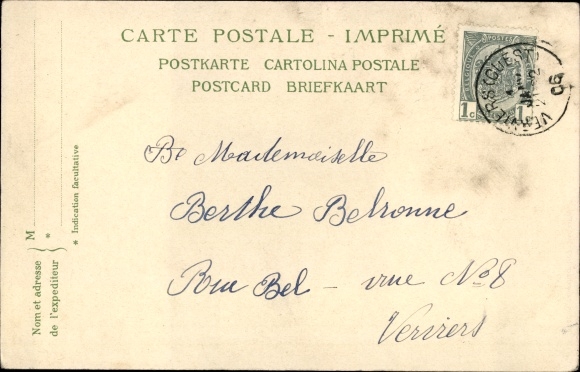 CARTE POSTALE - IMPRIMÉ
POSTKARTE CARTOLINA POSTALE
POSTCARD BRIEFKAART
POSTES
1c 1
VERVIERS (OUEST)
06
Mademoiselle
Berthe Belronne
Rue Bel - vue No 8
Verviers
M
*
Nom et adresse
de l'expediteur
* Indication facultative